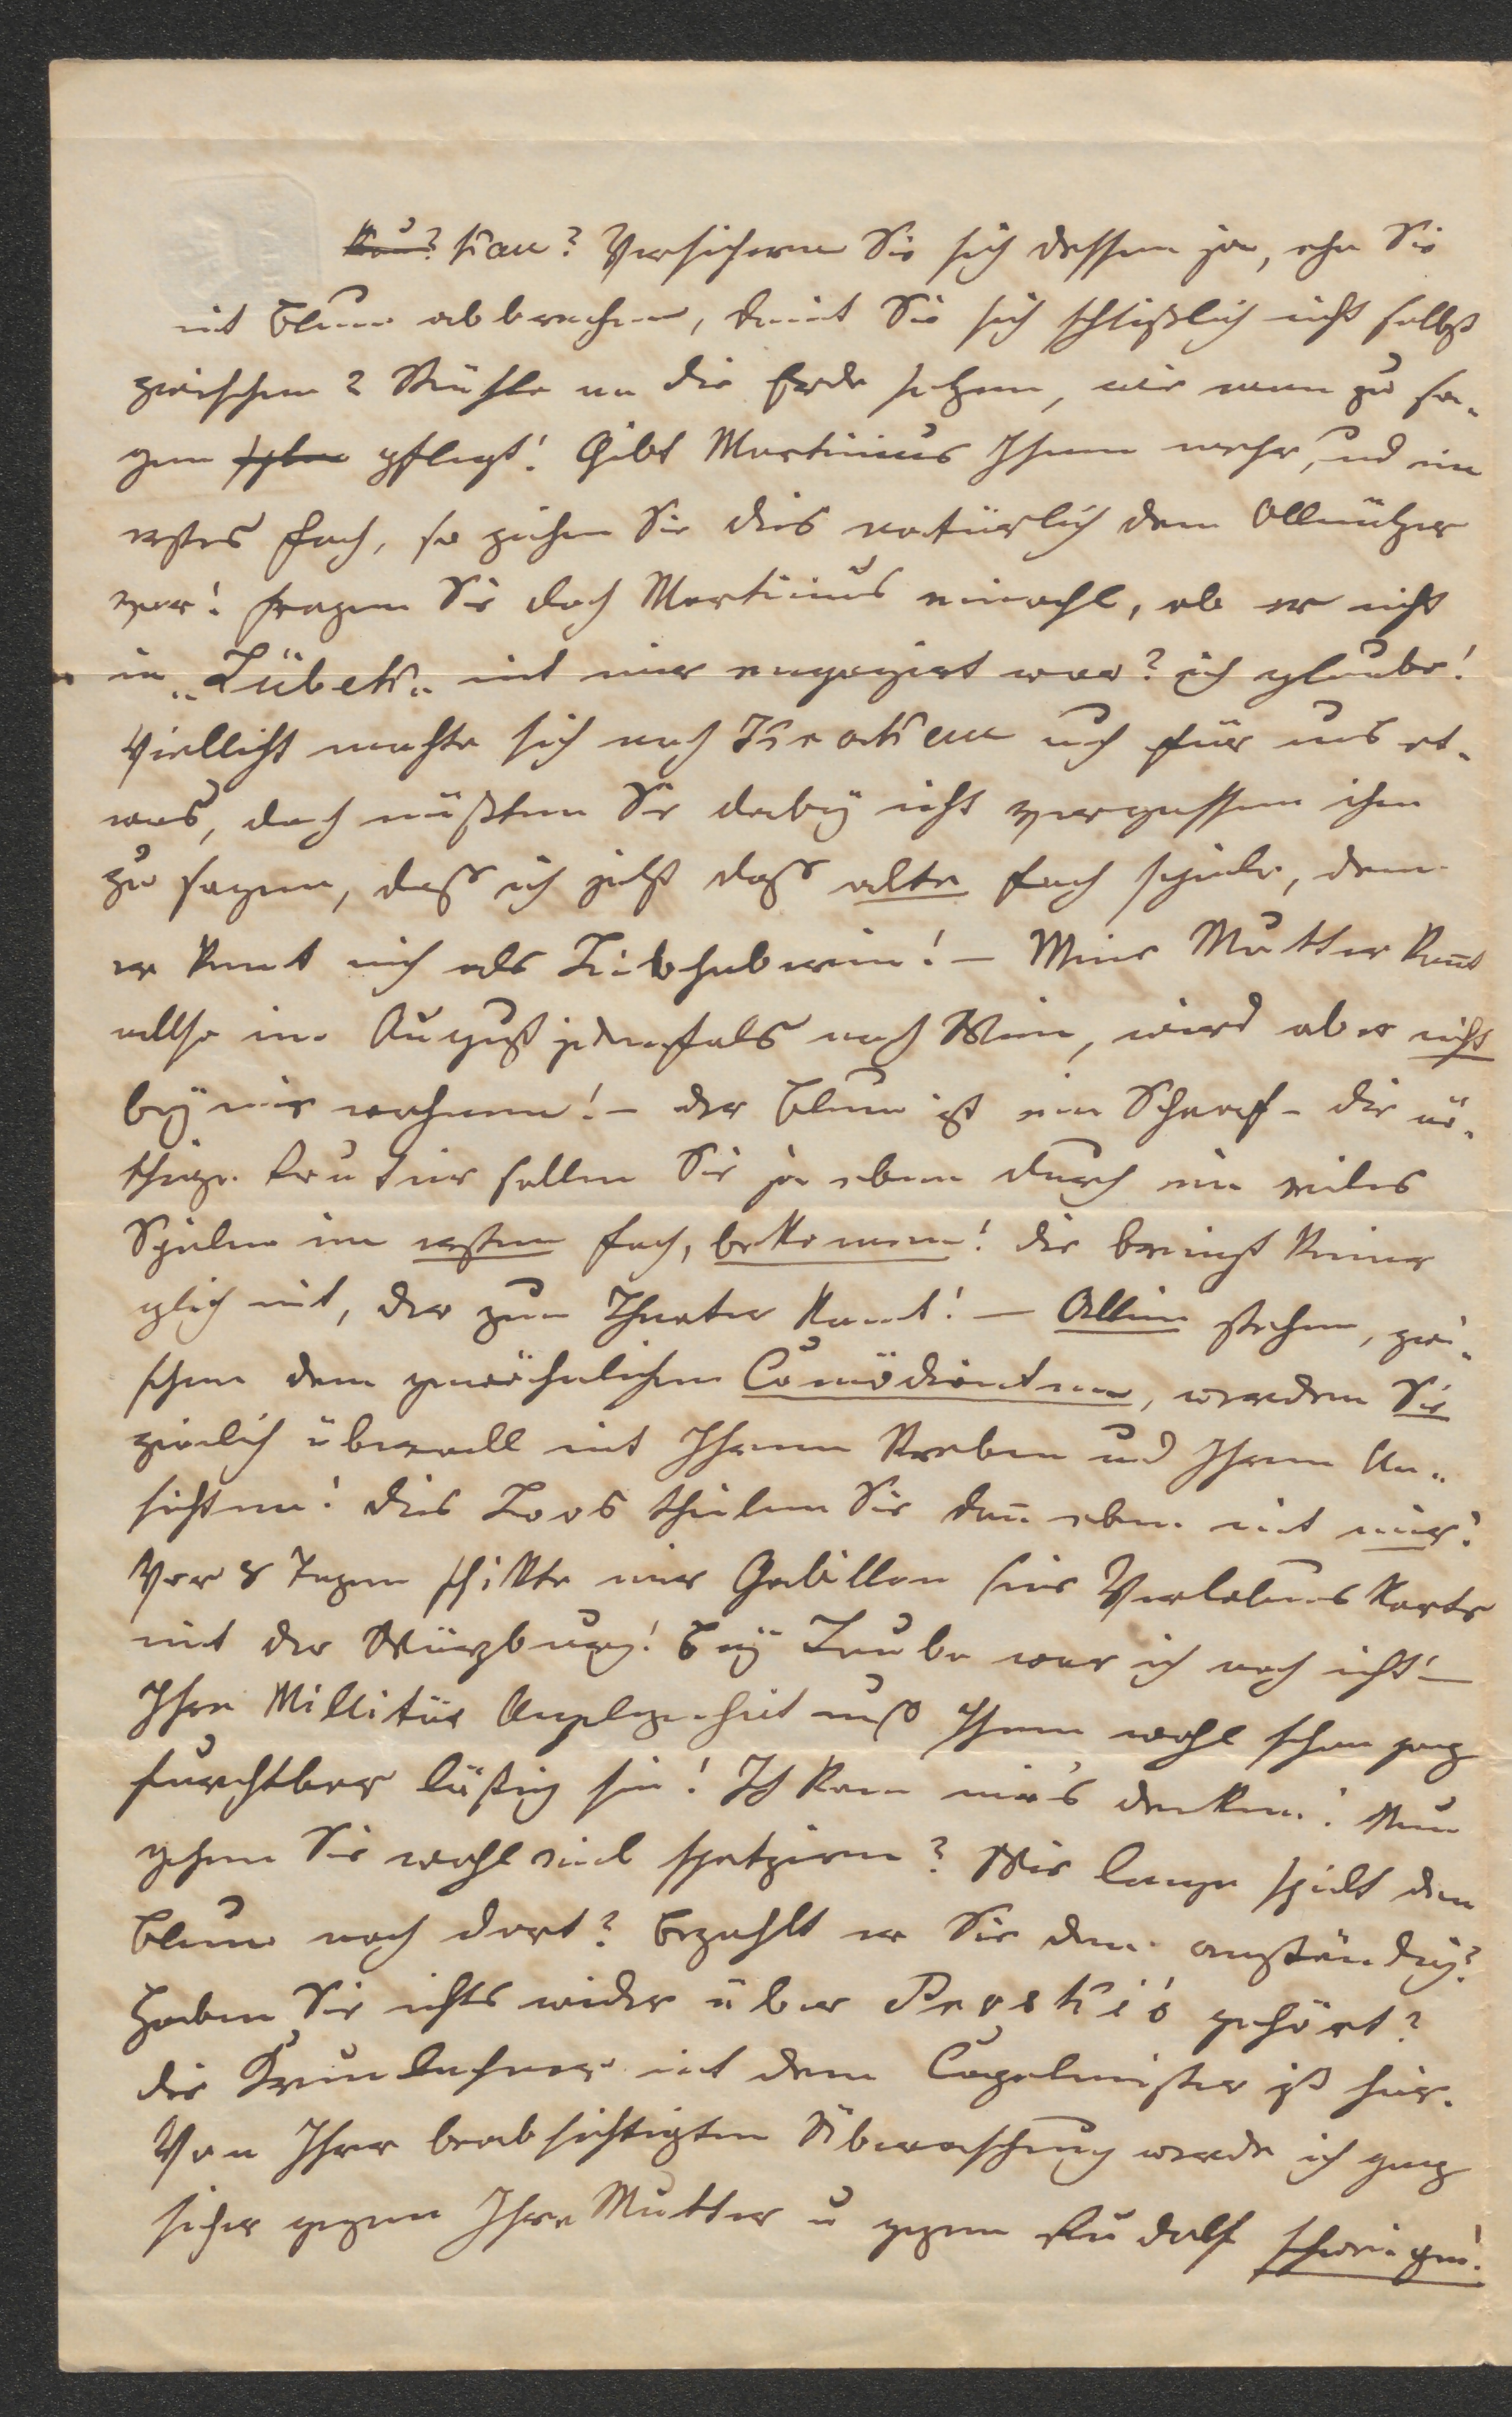 Kau? Kau? Versichern Sie sich dessen ja, ehe Sie
mit Blum abbrechen, damit Sie sich schlißlich nicht selbst
zwischen 2 Stühle an die Erde setzen, wie man zu sa-
gen pflegt! Gibt Martinius Ihnen mehr, und ein
erstes Fach, so ziehen Sie dies natürlich dem Ollmützer
vor! Fragen Sie doch Martinius einmahl, ob er nicht
in „Lübek" mit mir engagirt war? ich glaube!
Vielleicht machte sich nach Krakau auch für uns et-
was, doch müßten Sie dabey nicht vergessen ihm
zu sagen, dass ich jetzt dass alte Fach spiele, denn
er kennt mich als Liebhaberin! – Meine Mutter komt
allso im August jedenfals nach Wien, wird aber nicht
bey mir wohnen! – der Blum ist ein Schaaf – die nö-
thige Routine sollen Sie ja eben durch ein vieles
Spielen im ersten Fach, bekommen! die bringt keiner
gleich mit, der zum Theater komt! – Allein stehen, zwi-
schen dem gewöhnlichen Comödianten, werden Sie
ziemlich überall mit Ihrem Streben und Ihren An-
sichten! dies Loos theilen Sie dann eben mit mir!
Vor 8 Tagen schikte mir Gabillon seine Verlobungs Karte
mit der Würzburg! Bey Laube war ich noch nicht! –
Ihre Millitär Angelegenheit muß Ihnen wohl schon ganz
furchtbar lästig sein! Ich kann mir's denken! Nun
gehen Sie wohl viel spatzieren? Wie lange spielt den
Blum noch dort? Bezahlt er Sie denn anständig?
Haben Sie nichts wieder über Perski's gehört?
die mit dem Capelmeister ist hier.
Von Ihrer beabsichtigten Überraschung werde ich ganz
sicher gegen Ihre Mutter u gegen Rudolf schweigen!